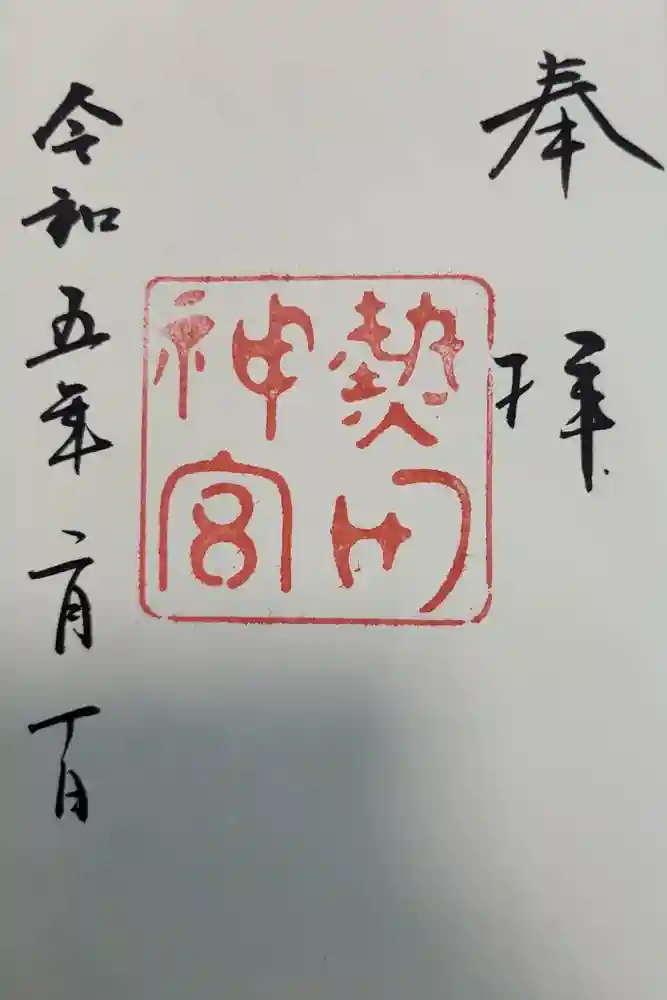 奉拝
熱田神宮
令和五年二月一日